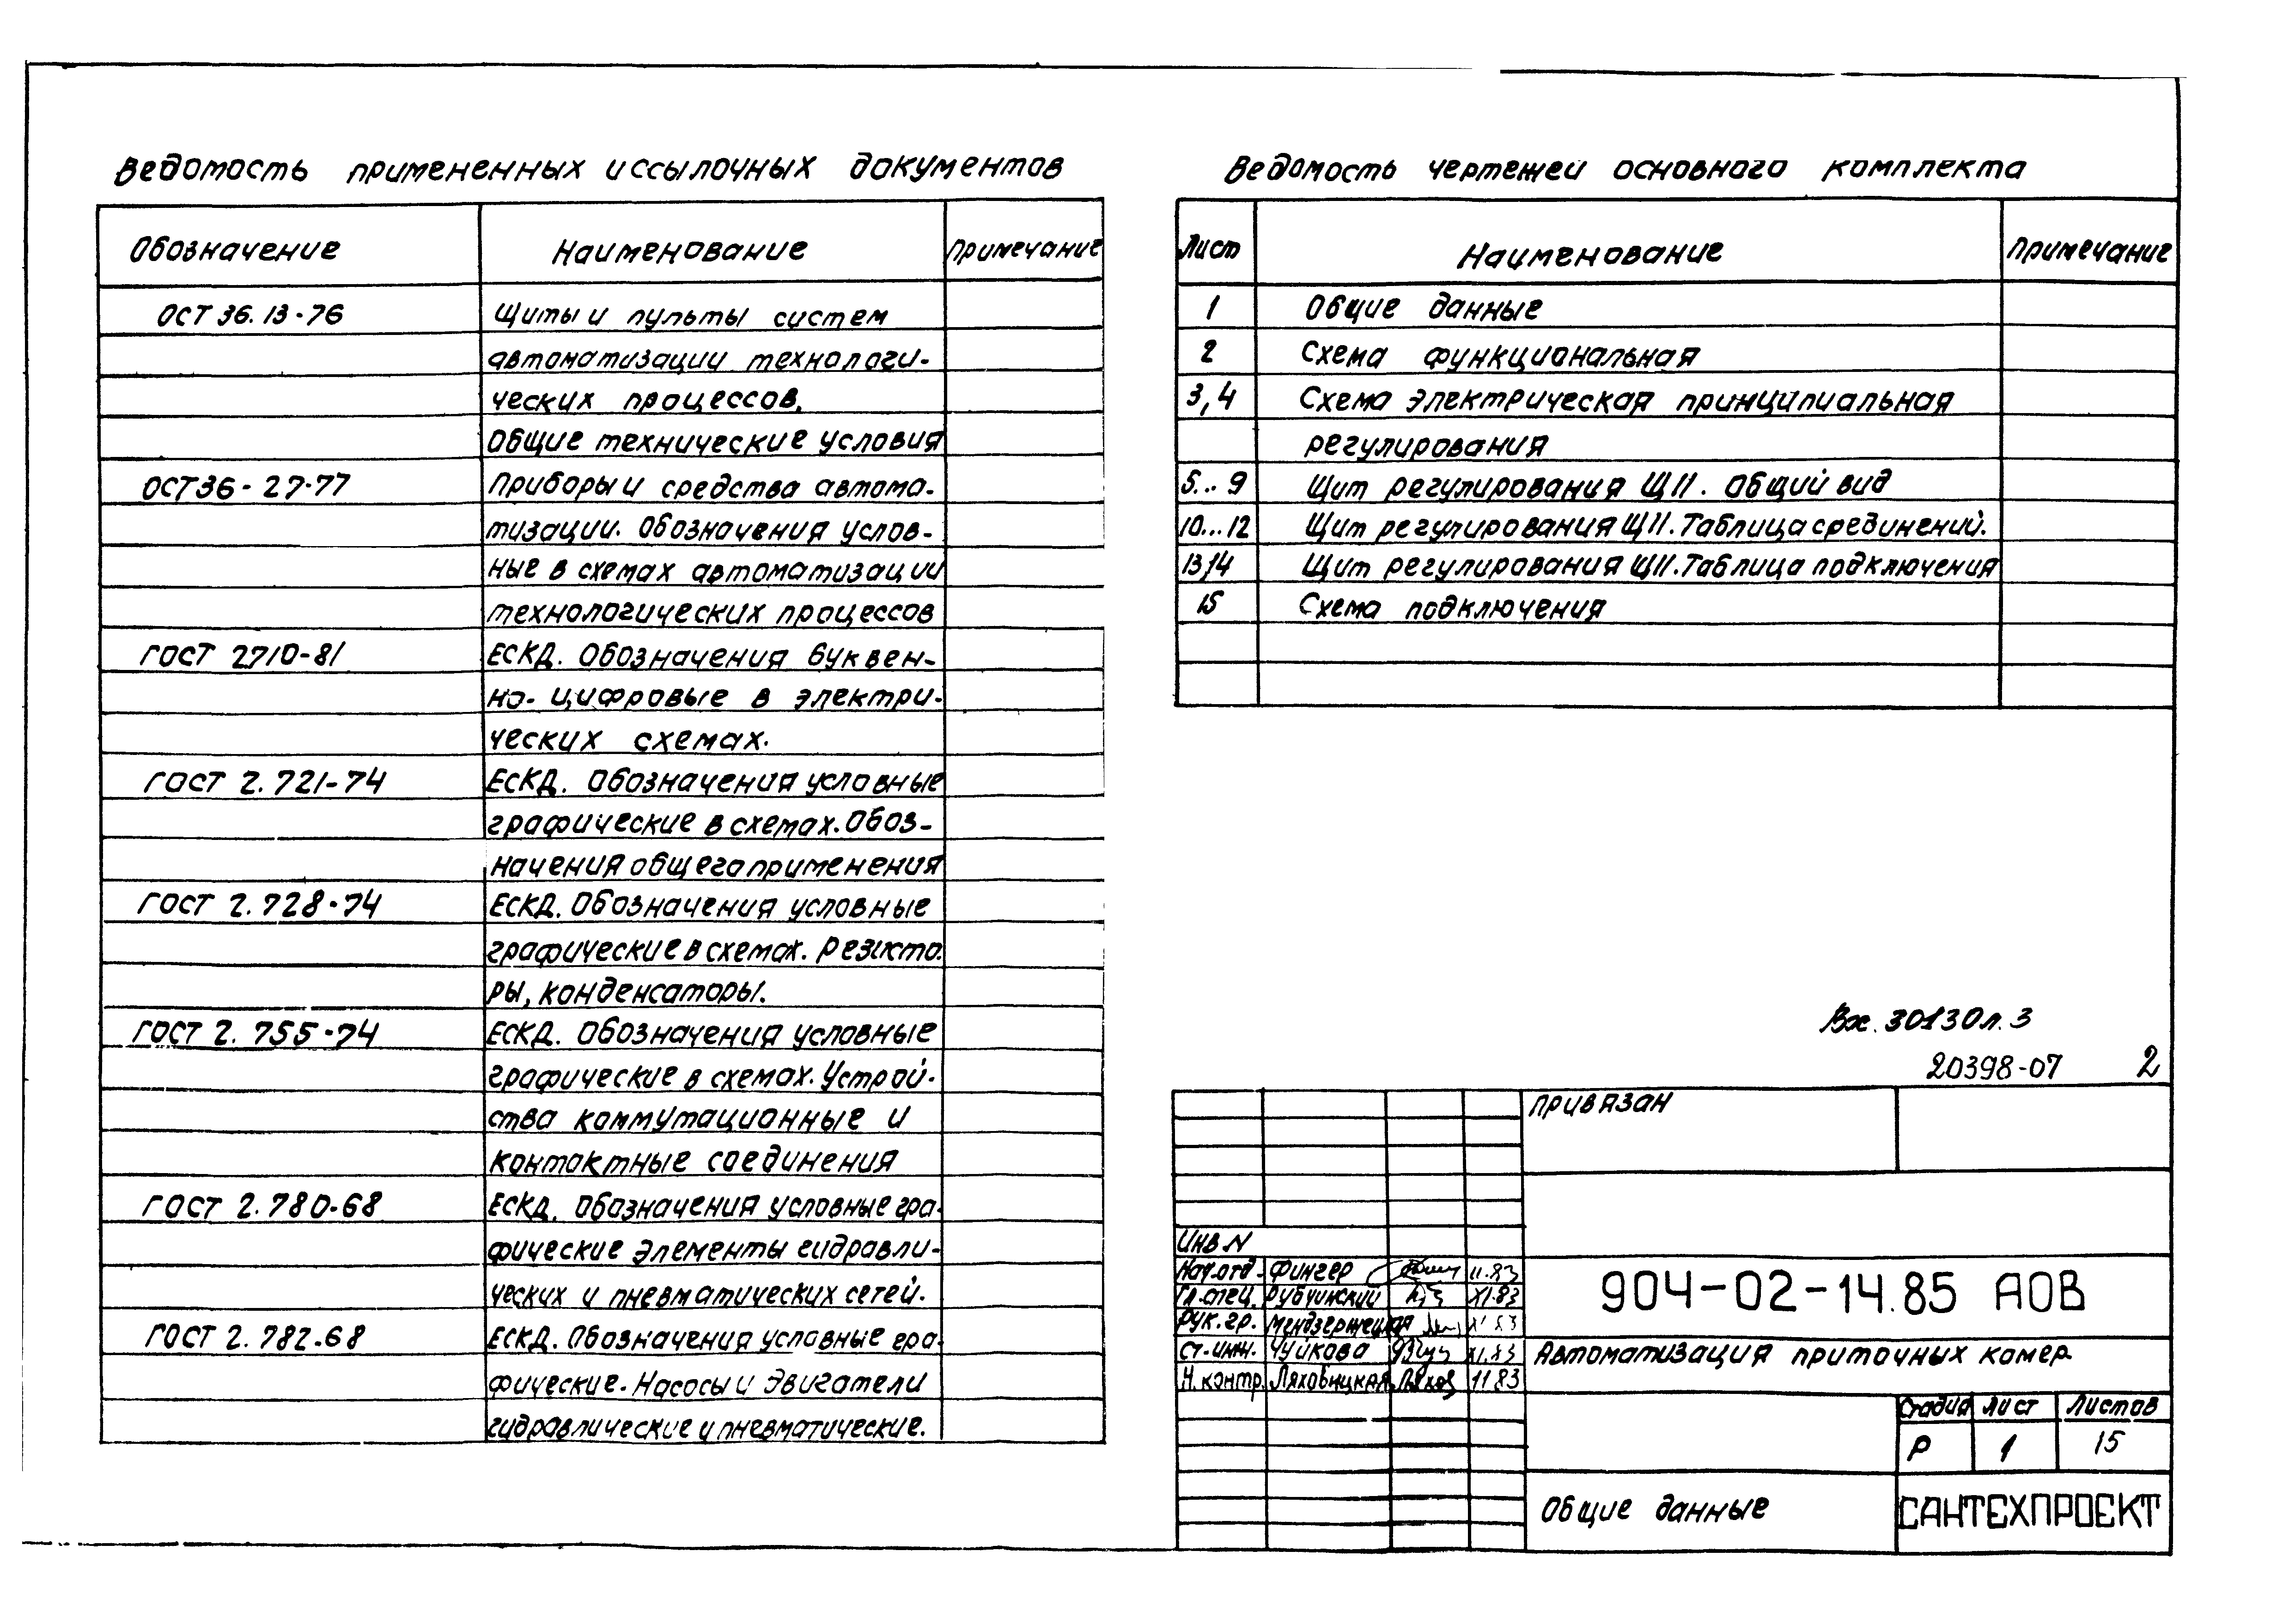 Ведомость примененных и ссылочных документов
Обозначение Наименование Примечание
ОСТ 36.13-76 Щиты и пульты систем
автоматизации технологи-
ческих процессов.
Общие технические условия
ОСТ 36-27-77 Приборы и средства автома-
тизации. Обозначения услов-
ные в схемах автоматизации
технологических процессов
ГОСТ 2710-81 ЕСКД. Обозначения буквен-
но-цифровые в электри-
ческих схемах.
ГОСТ 2.721-74 ЕСКД. Обозначения условные
графические в схемах. Обоз-
начения общего применения
ГОСТ 2.728-74 ЕСКД. Обозначения условные
графические в схемах. Резисто-
ры, конденсаторы.
ГОСТ 2.755-74 ЕСКД. Обозначения условные
графические в схемах. Устрой-
ства коммутационные и
контактные соединения
ГОСТ 2.780-68 ЕСКД. Обозначения условные гра-
фические элементы гидравли-
ческих и пневматических сетей.
ГОСТ 2.782-68 ЕСКД. Обозначения условные гра-
фические. Насосы и двигатели
гидравлические и пневматические.
Ведомость чертежей основного комплекта
Лист Наименование Примечание
1 Общие данные
2 Схема функциональная
3,4 Схема электрическая принципиальная
регулирования
5...9 Щит регулирования ЩП. Общий вид
10...12 Щит регулирования ЩП. Таблица средінений.
13,14 Щит регулирования ЩП. Таблица подключения
15 Схема подключения
Вх. 30130 л. 3
20398-07 2
Привязан
Инв N
Нач.отд. Фингер 11.83
Гл.спец. Рубчинский XI.83
Рук.гр. Мендзержецкая XI.83
Ст.инж. Чуйкова XI.83
Н.контр. Ляховицкая 11 83
904-02-14.85 АОВ
Автоматизация приточных камер
Стадия Лист Листов
Р 1 15
Общие данные
САНТЕХПРОЕКТ